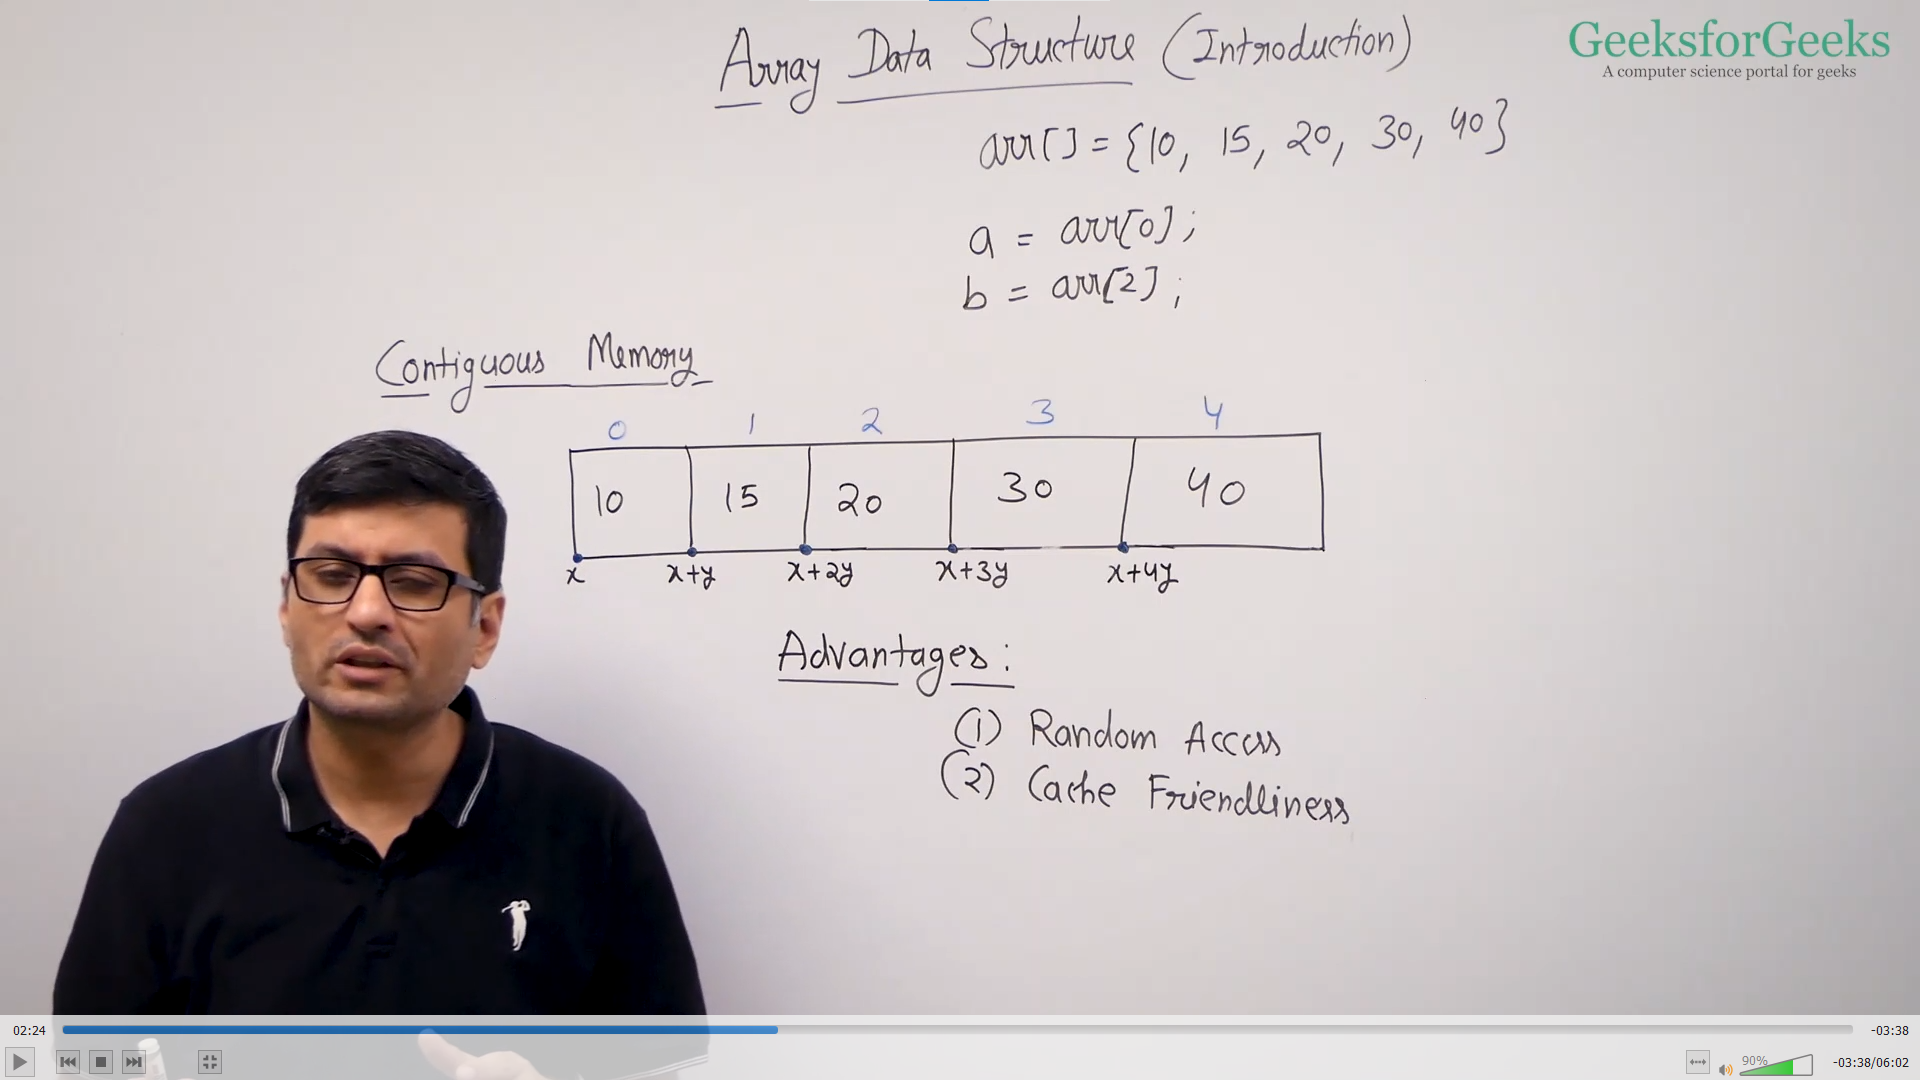 Array Data Structure (Introduction)
GeeksforGeeks
A computer science portal for geeks
arr[] = {10, 15, 20, 30, 40}
a = arr[0];
b = arr[2];
Contiguous Memory
0 1 2 3 4
10 15 20 30 40
x x+y x+2y x+3y x+4y
Advantages:
(1) Random Access
(2) Cache Friendliness
02:24 -03:38
90% -03:38/06:02